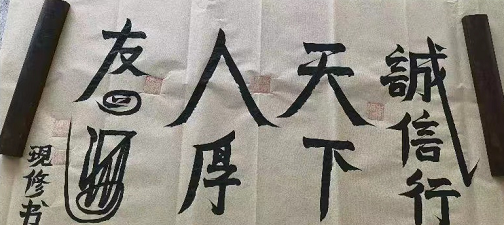 誠信行
天下
人厚
友四
現修书